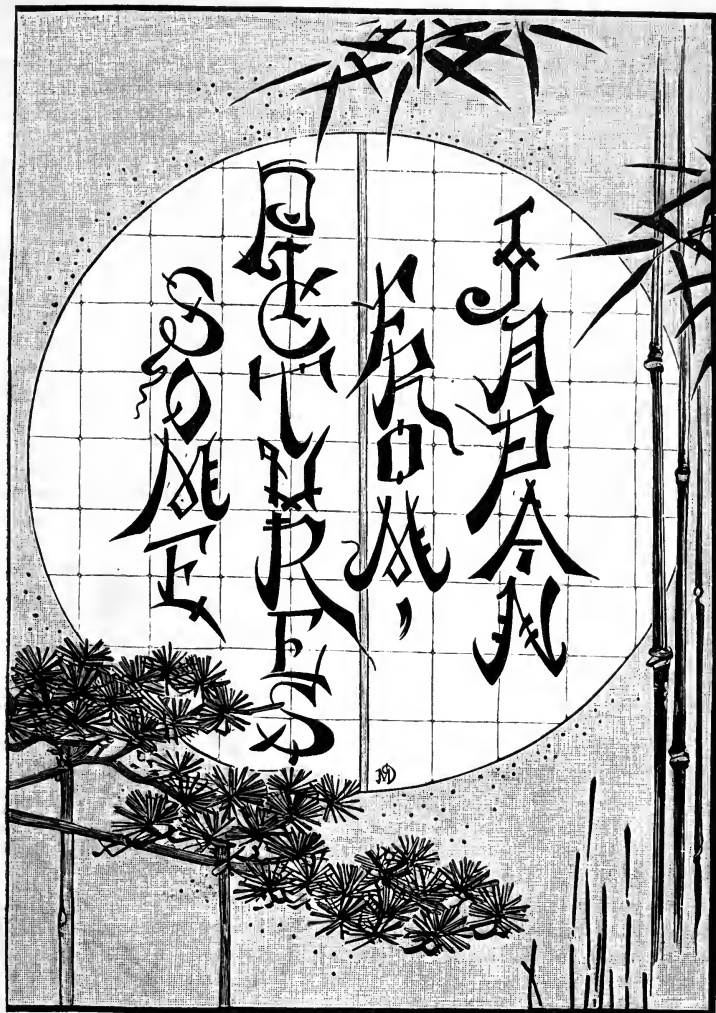 SOME
PICTURES
FROM,
JAPAN